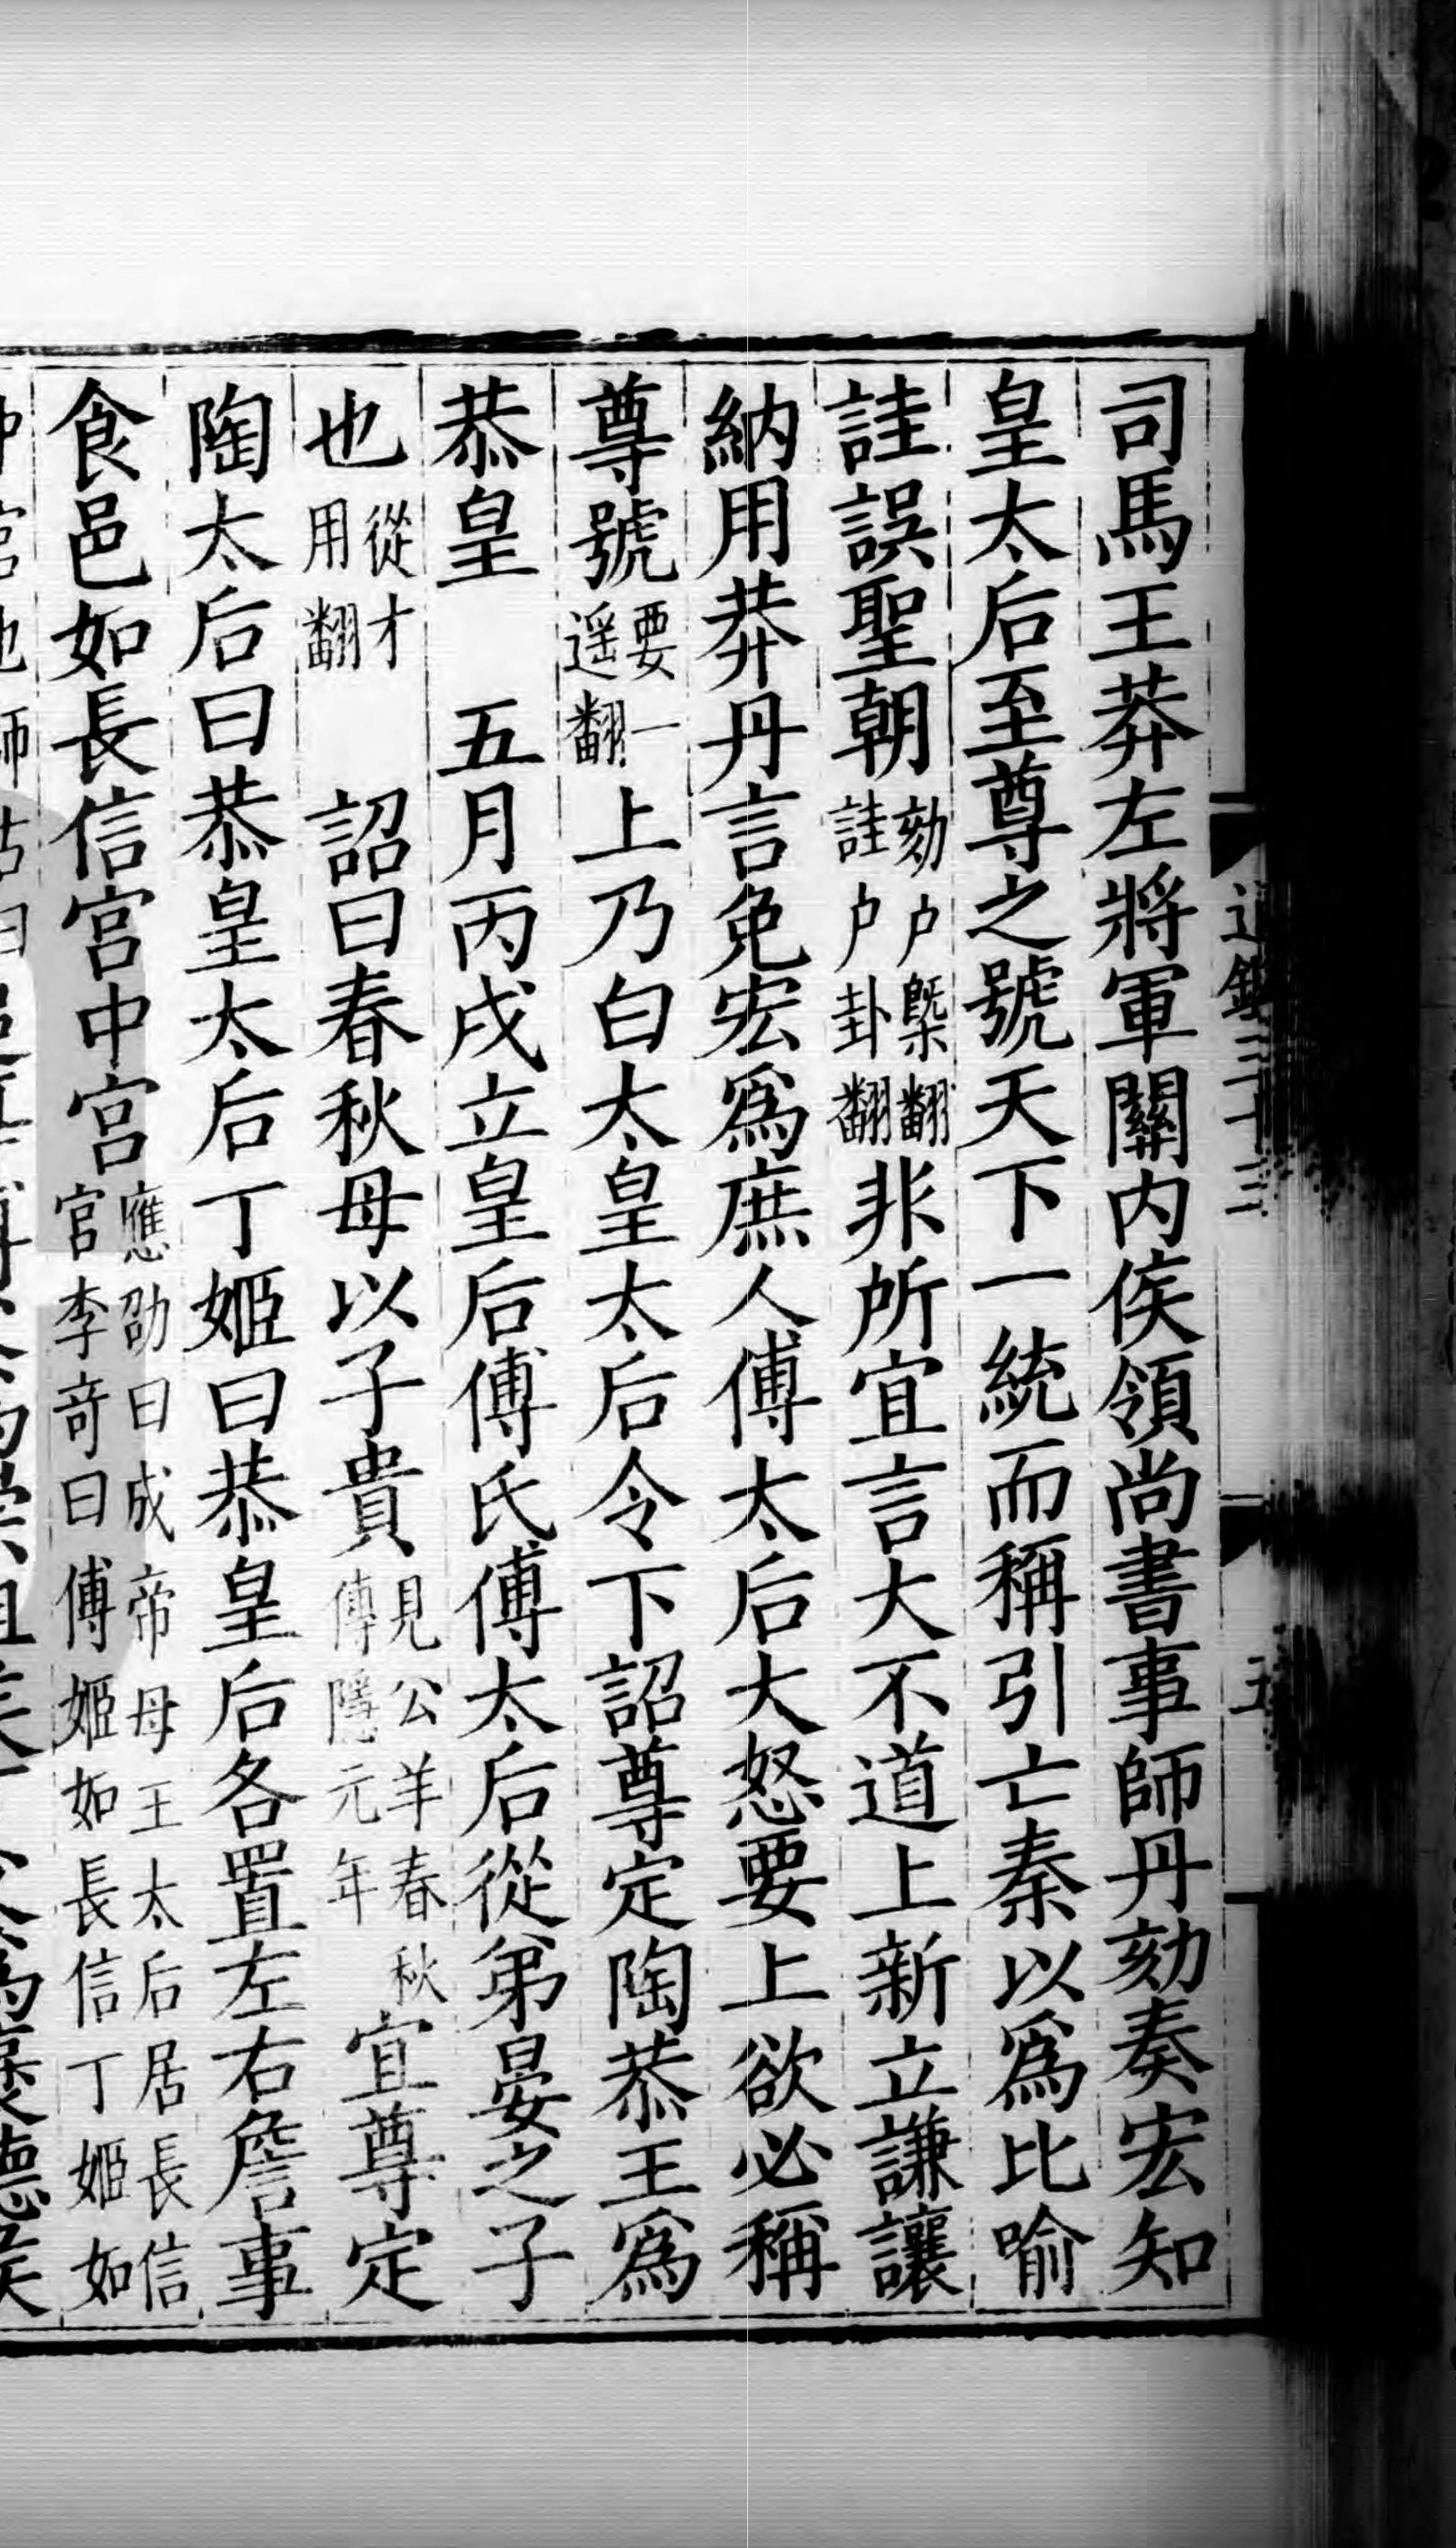 司馬王莽左將軍關内侯領尚書事師丹劾奏宏知
皇太后至尊之號天下一統而稱引亡秦以爲比喻
詿誤聖朝劾户槩翻詿户卦翻非所宜言大不道上新立謙讓
納用莽丹言免宏爲庶人傅太后大怒要上欲必稱
尊號要一遥翻上乃白太皇太后令下詔尊定陶恭王爲
恭皇　五月丙戌立皇后傅氏傅太后從弟晏之子
也從才用翻　詔曰春秋母以子貴見公羊春秋傳隱元年宜尊定
陶太后曰恭皇太后丁姬曰恭皇后各置左右詹事
食邑如長信宮中宮應劭曰成帝母王太后居長信官李竒曰傅姬如長信丁姬如